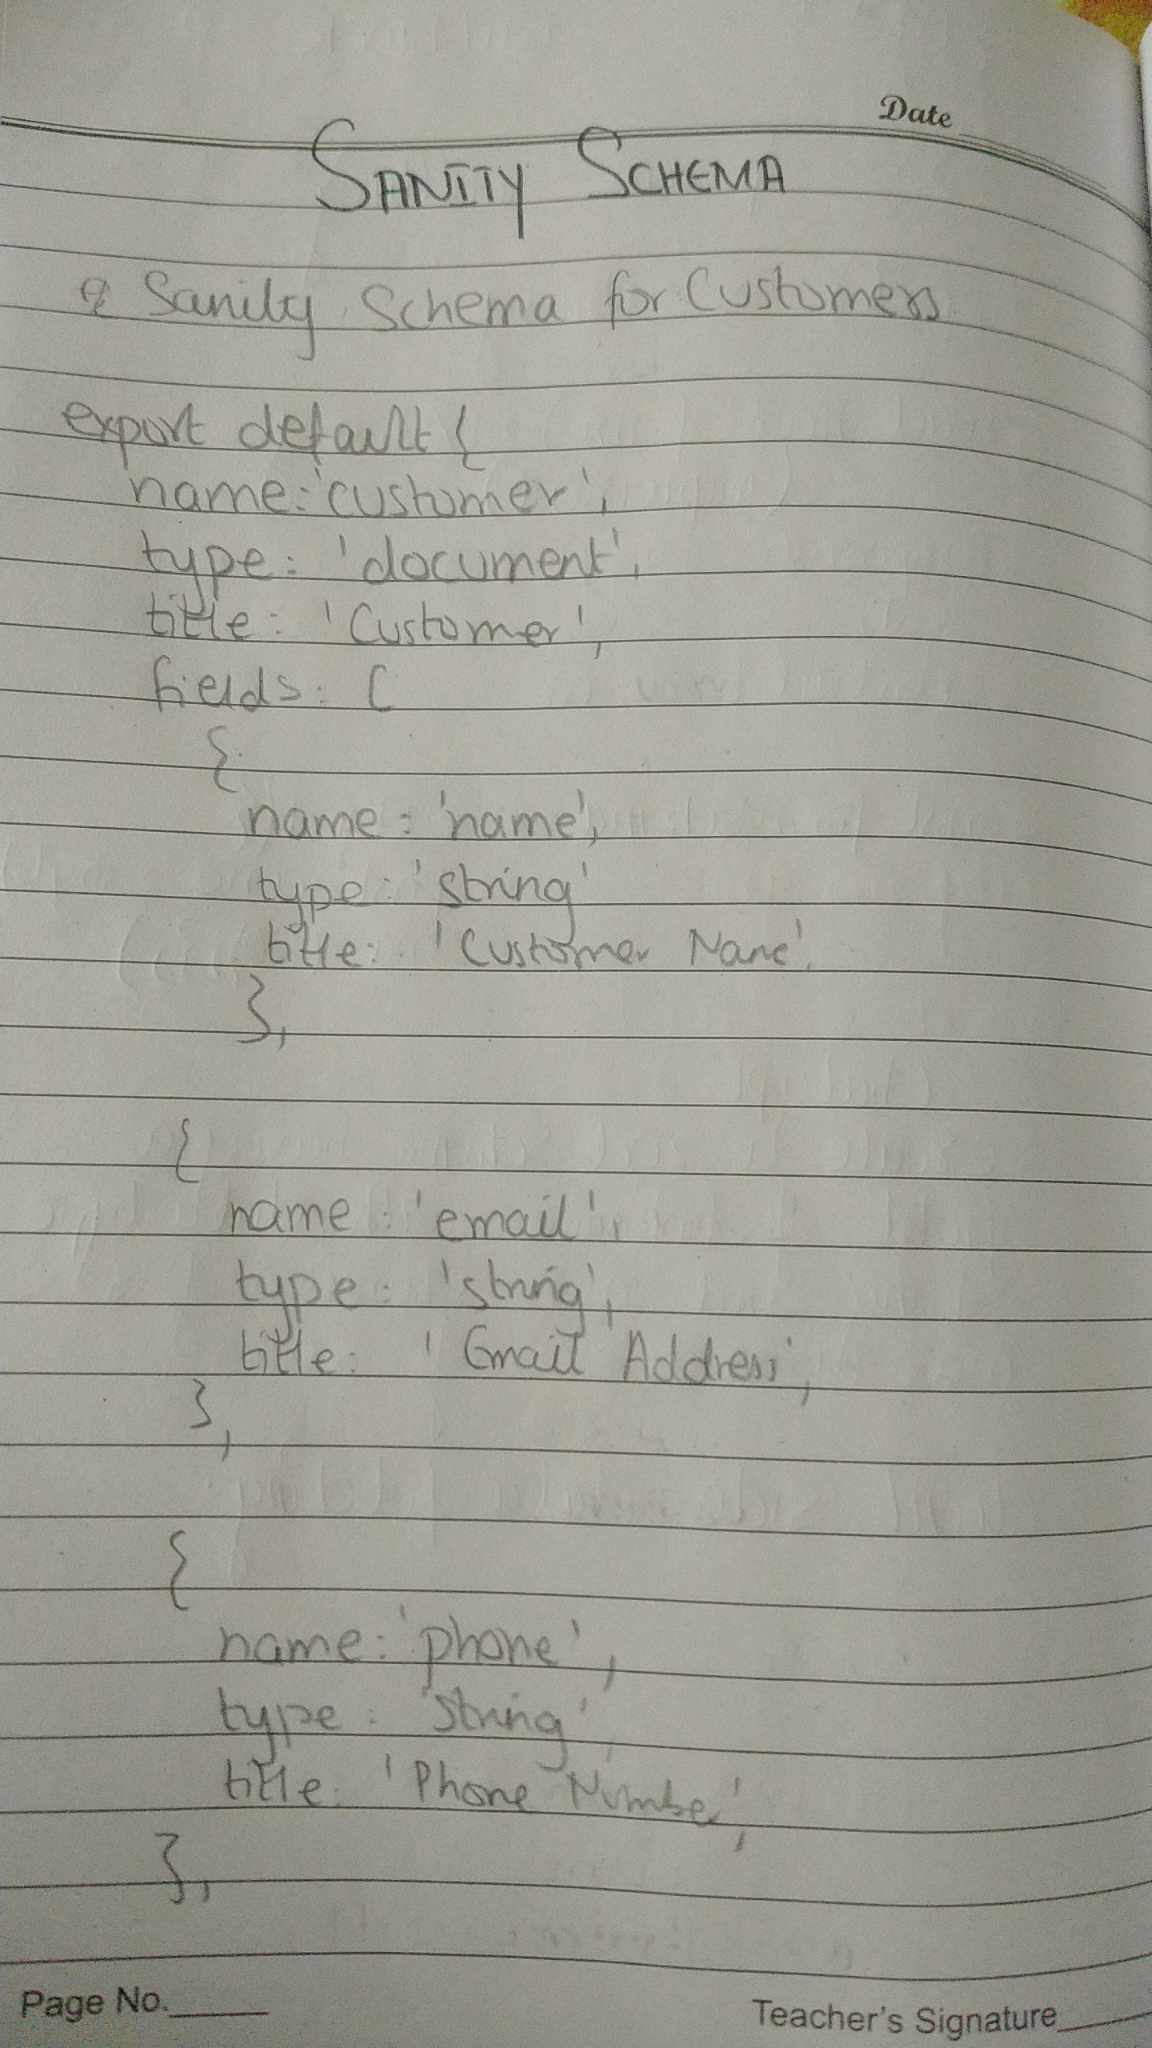 Date
SANITY SCHEMA
Sanity Schema for Customers
export default {
name: 'customer',
type: 'document',
title: 'Customer',
fields: [
{
name: 'name',
type: 'string'
title: 'Customer Name'.
},
{
name: 'email',
type: 'string',
title: 'Email Address',
},
{
name: 'phone',
type: 'string',
title: 'Phone Number',
},
Page No.
Teacher's Signature